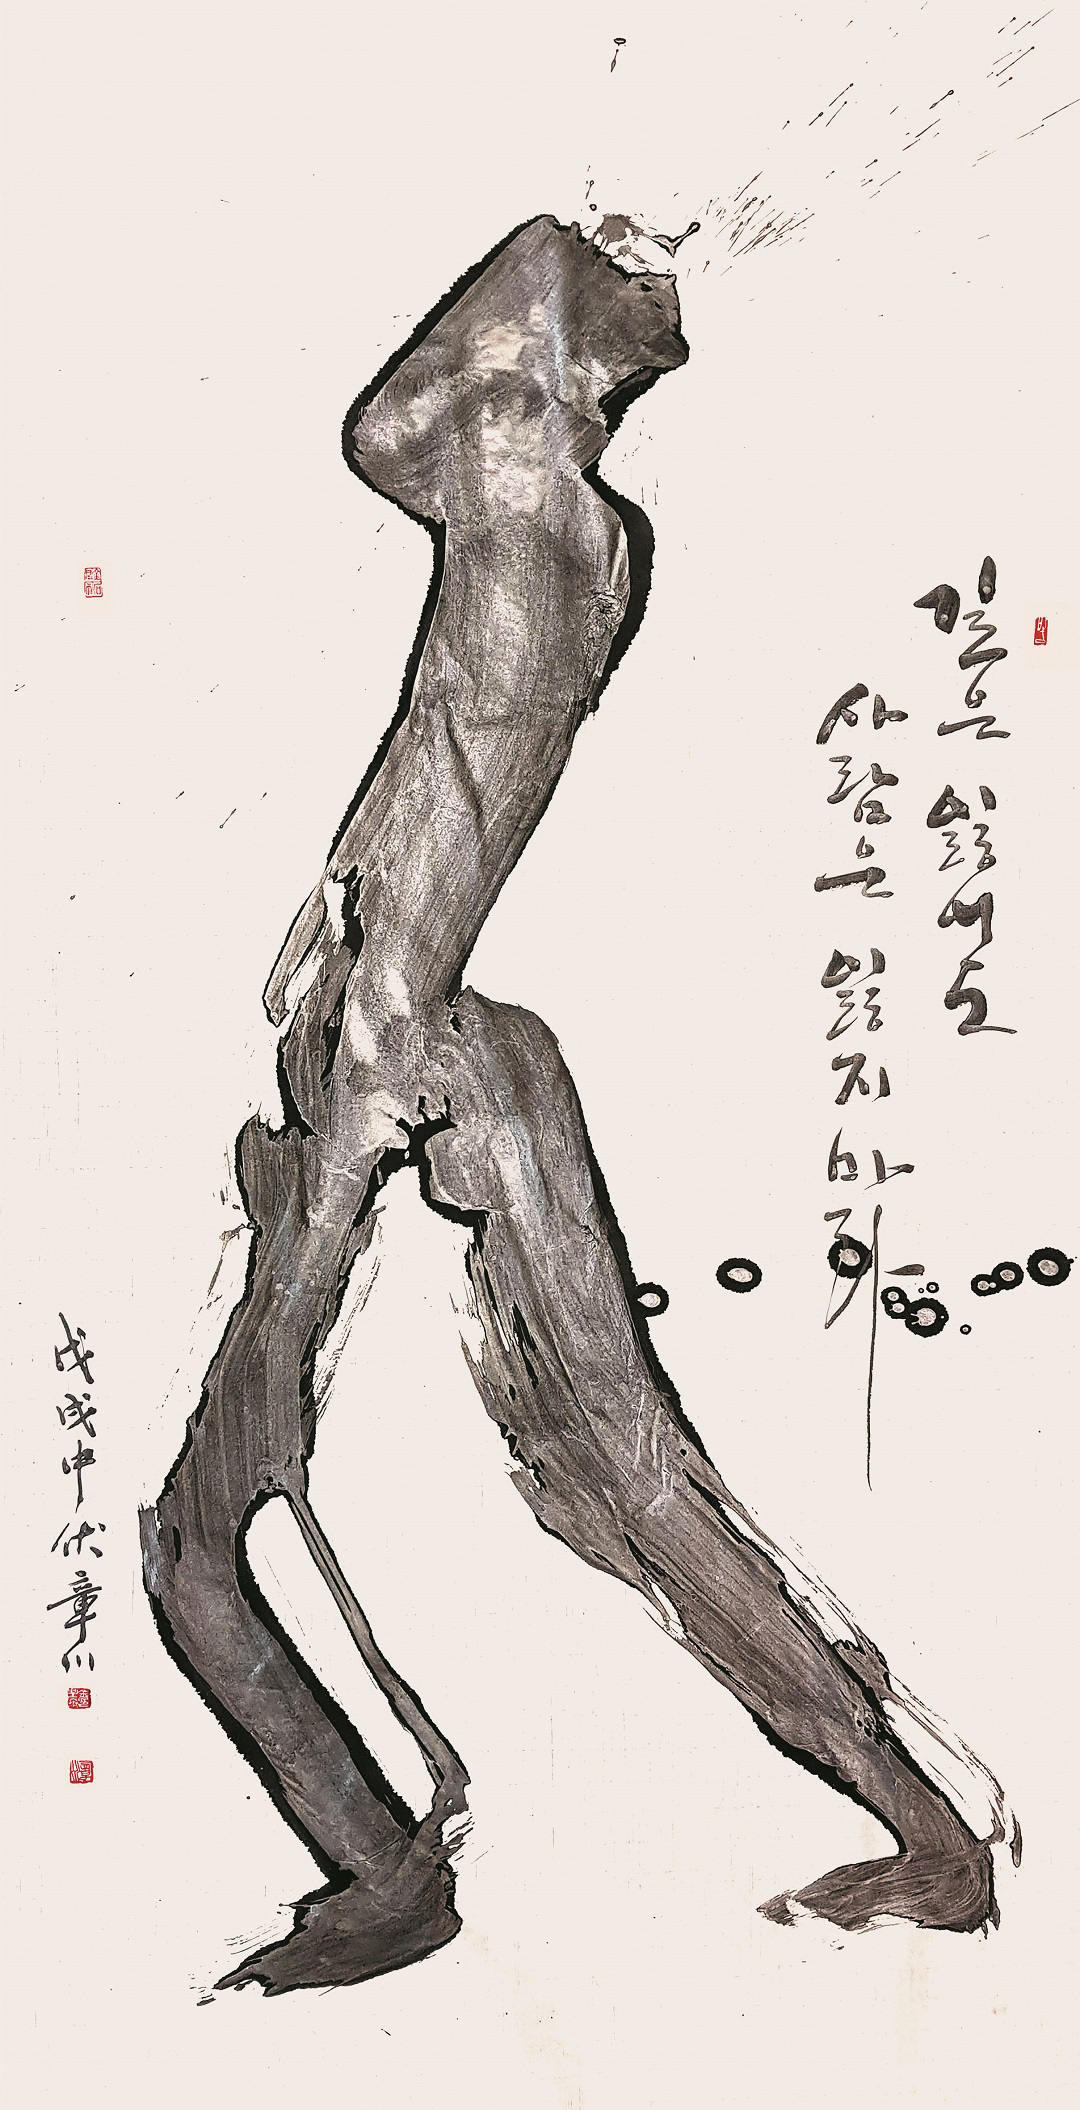 길은 잃어도
사람은 잃지 마라
戊戌中伏章川